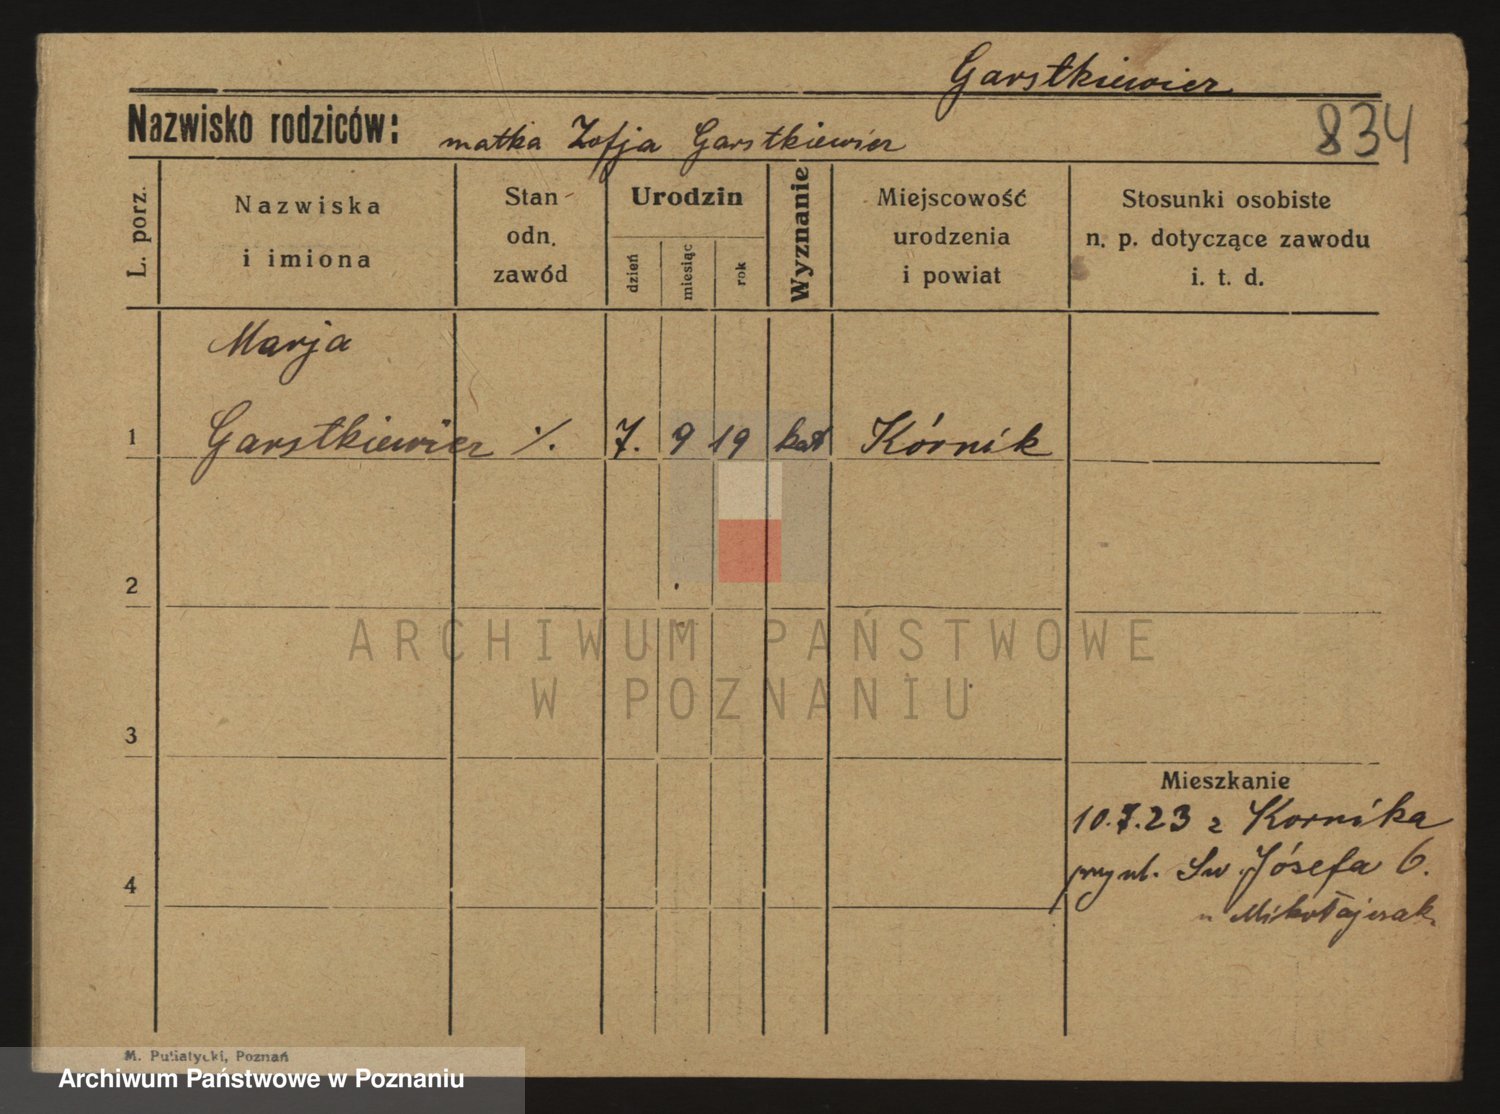 Garstkiewicz
834
Nazwisko rodziców: matka Zofja Garstkiewicz
L. porz.
Nazwiska
i imiona
Stan
odn.
zawód
Urodzin
dzień
miesiąc
rok
Wyznanie
Miejscowość
urodzenia
i powiat
Stosunki osobiste
n. p. dotyczące zawodu
i. t. d.
Marja
1 Garstkiewicz ·/. 7. 9 19 kat Kórnik
2
ARCHIWUM PAŃSTWOWE
W POZNANIU
3
Mieszkanie
10.7.23 z Kornika
przy ul. Św. Józefa 6.
4
u Mikołajczak.
M. Putiatycki, Poznań
Archiwum Państwowe w Poznaniu